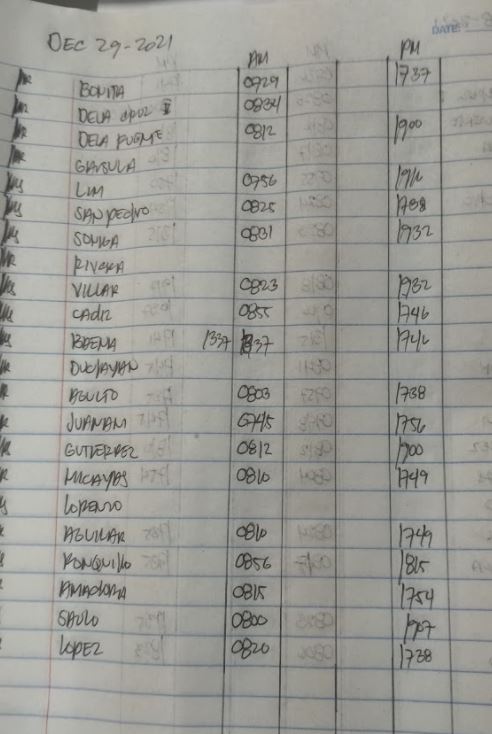 DATE:
DEC 29-2021
AM PM
BONITA 0729 1737
DELA CRUZ I 0834
DELA FUENTE 0812 1900
GARSULA
LIM 0756 1916
SAN PEDRO 0825 1738
SONGA 0831 1932
RIVERA
VILLAR 0823 1932
CADIZ 0855 1746
BAENA 1337 1337 1746
DUCLAYAN
AGULTO 0803 1738
JUANANI 0745 1756
GUTIERREZ 0812 1900
MICAYAS 0810 1749
LORENZO
AGUILAR 0810 1749
RONQUILLO 0856 1815
AMADORA 0815 1754
SAULO 0800 1907
LOPEZ 0820 1738